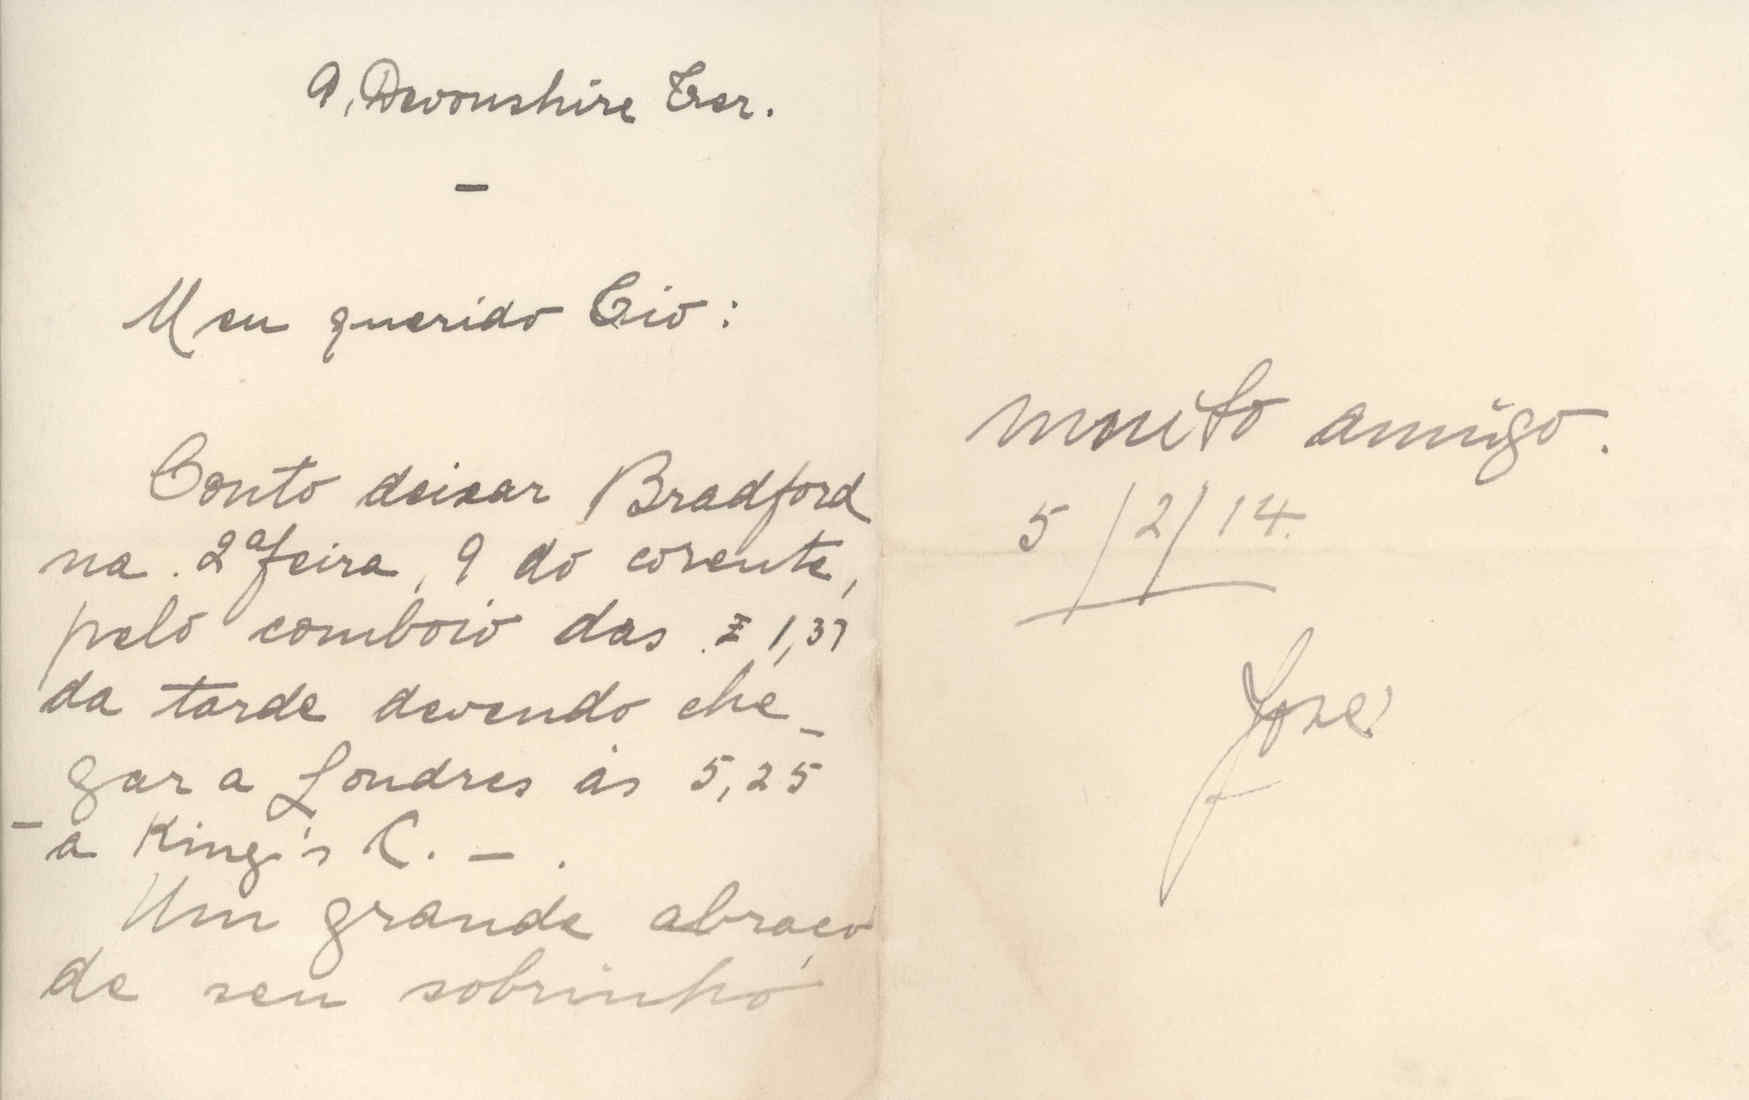 9, Devonshire Ter.
—
Meu querido Tio:
Conto deixar Bradford
na 2ª feira, 9 do corente,
pelo comboio das 1,37
da tarde devendo che_
gar a Londres ás 5,25
— a King's C. — .
Um grande abraço
de seu sobrinho
muito amigo.
5/2/14.
José